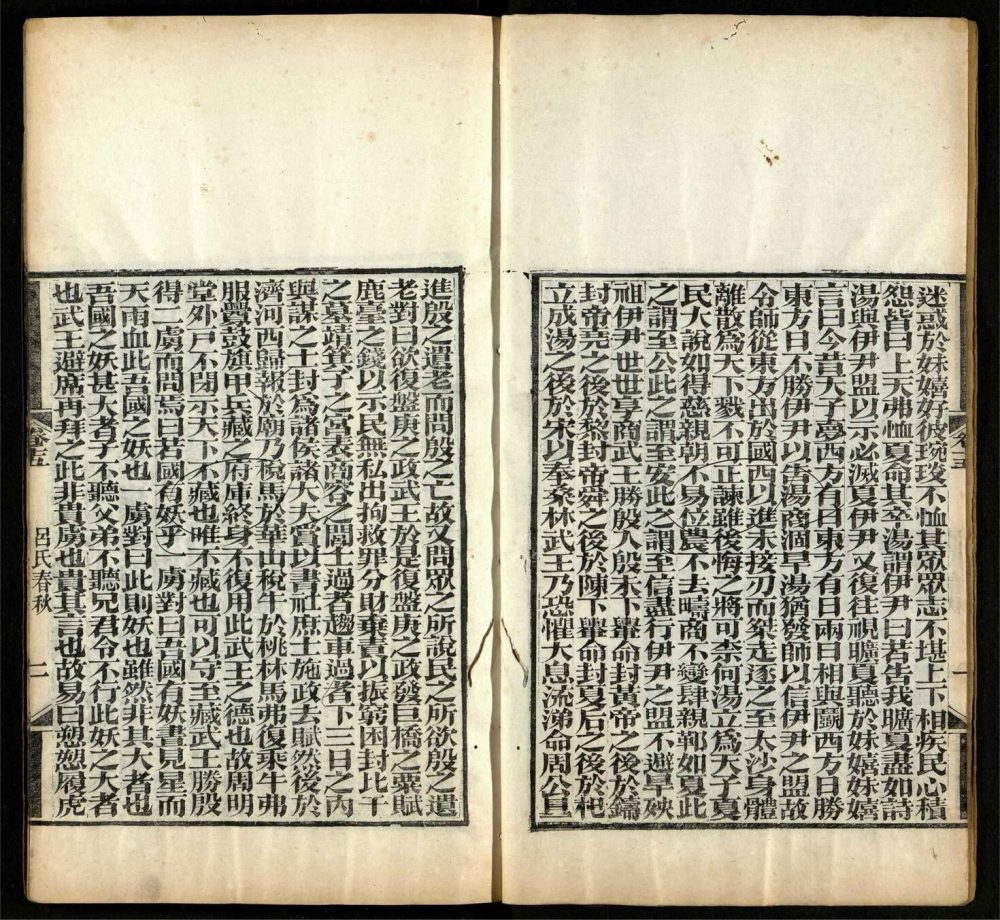 迷惑於妹嬉好彼琬琰不恤其眾眾志不堪上下相疾民心積
怨皆曰上天弗恤夏命其卒湯謂伊尹曰若告我曠夏盡如詩
湯與伊尹盟以示必滅夏伊尹又復往視曠夏聽於妹嬉妹嬉
言曰今昔天子夢西方有日東方有日兩日相與鬬西方日勝
東方日不勝伊尹以告湯商涸旱湯猶發師以信伊尹之盟故
令師從東方出於國西以進未接刃而桀走逐之至太沙身體
離散爲天下戮不可正諫雖後悔之將可柰何湯立爲天子夏
民大說如得慈親朝不易位農不去疇商不變肆親郼如夏此
之謂至公此之謂至安此之謂至信盡行伊尹之盟不避旱殃
祖伊尹世世享商武王勝殷入殷未下轝命封黃帝之後於鑄
封帝堯之後於黎封帝舜之後於陳下轝命封夏后之後於杞
立成湯之後於宋以奉桒林武王乃恐懼大息流涕命周公旦
卷十五
一
進殷之遺老而問殷之亡故又問眾之所說民之所欲殷之遺
老對曰欲復盤庚之政武王於是復盤庚之政發巨橋之粟賦
鹿臺之錢以示民無私出拘救罪分財棄責以振窮困封比干
之墓靖箕子之宮表商容之閭士過者趨車過者下三日之內
與謀之士封爲諸侯諸大夫賞以書社庶士施政去賦然後於
濟河西歸報於廟乃稅馬於華山稅牛於桃林馬弗復乘牛弗
服釁鼓旗甲兵藏之府庫終身不復用此武王之德也故周明
堂外戶不閉示天下不藏也唯不藏也可以守至藏武王勝殷
得二虜而問焉曰若國有妖乎一虜對曰吾國有妖晝見星而
天雨血此吾國之妖也一虜對曰此則妖也雖然非其大者也
吾國之妖甚大者子不聽父弟不聽兄君令不行此妖之大者
也武王避席再拜之此非貴虜也貴其言也故易曰愬愬履虎
卷十五
呂氏春秋
二